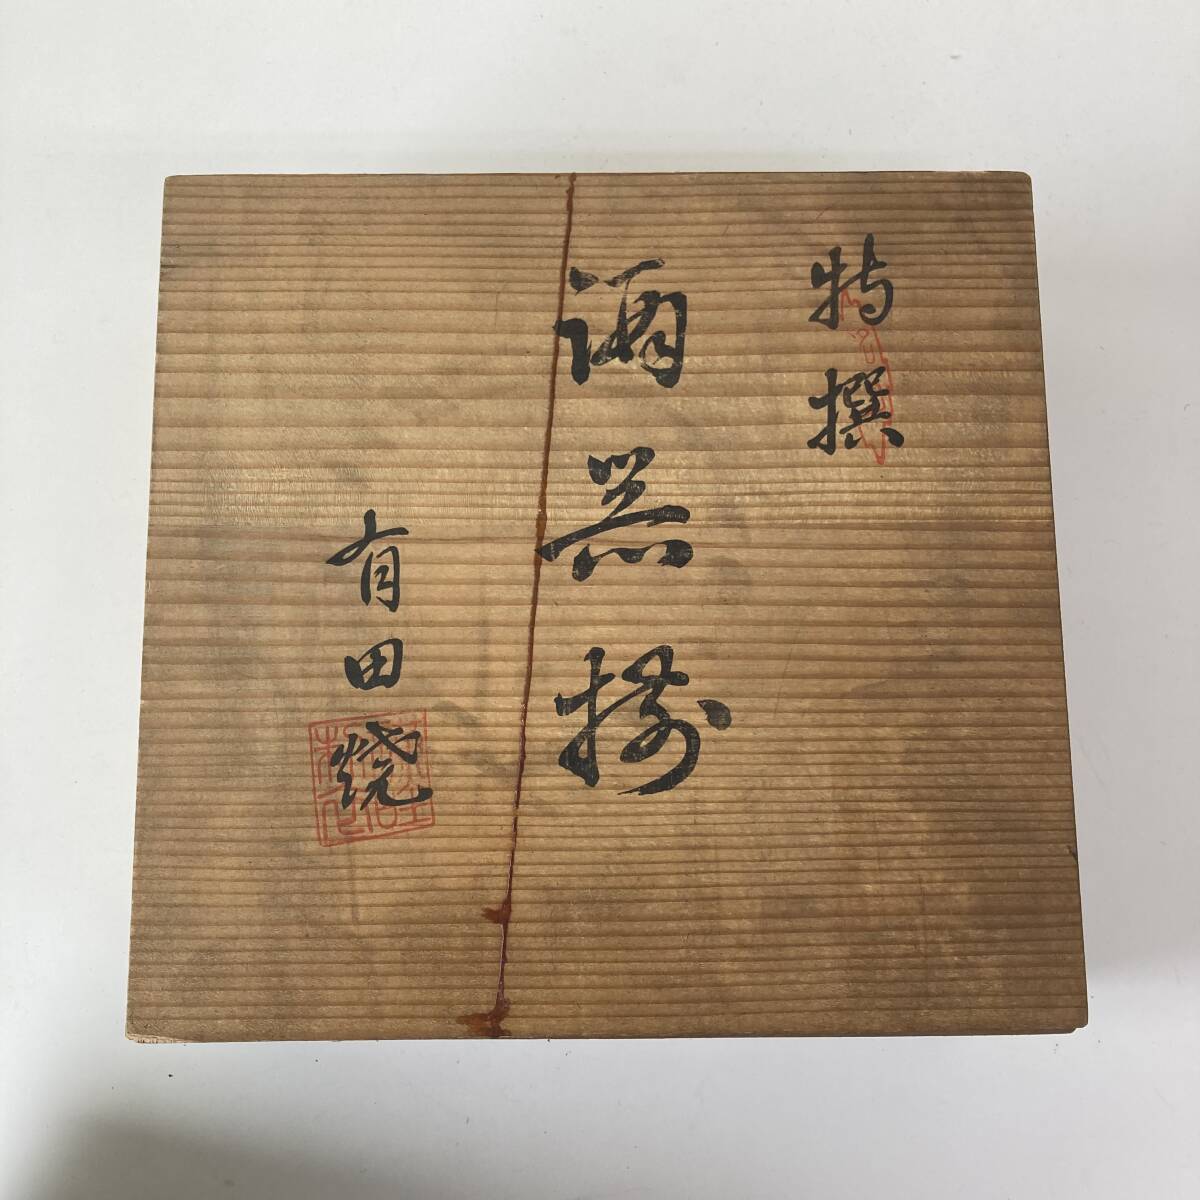 特撰
酒器揃
有田焼